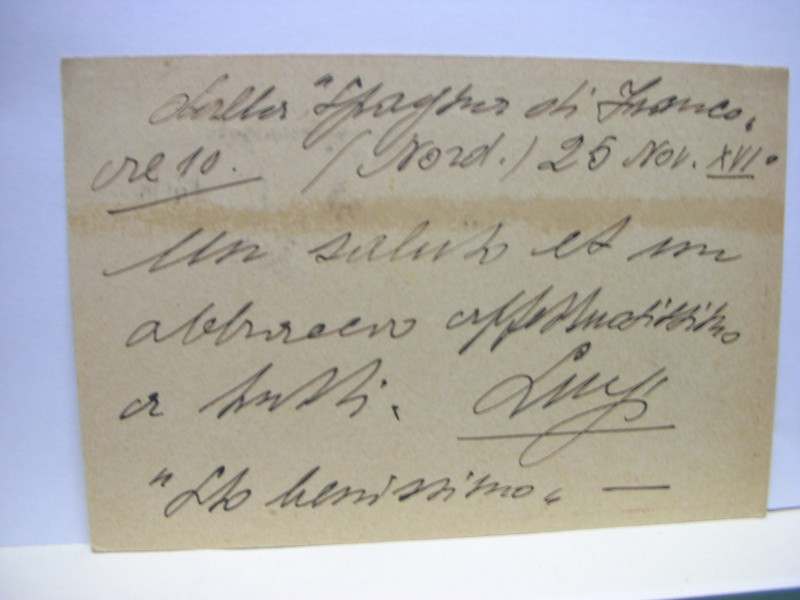 Dalla "Spagna di Franco„
ore 10. (Nord.) 25 Nov. XVI°
Un saluto et un
abbraccio affettuosissimo
a tutti. Luigi
"Sto benissimo„ —